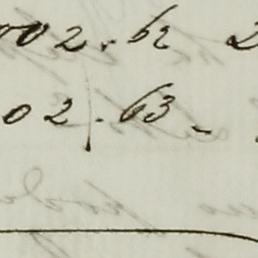 002. 62 2
02. 63 -